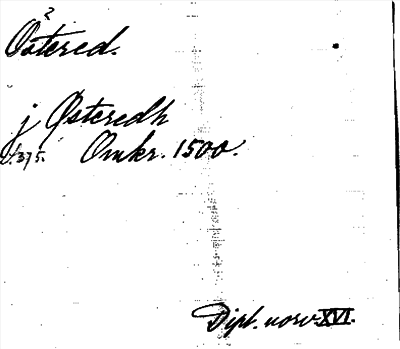 ?
Östered.
j Østeredh
s.375. Omkr. 1500.
Dipl. norv. XVI.